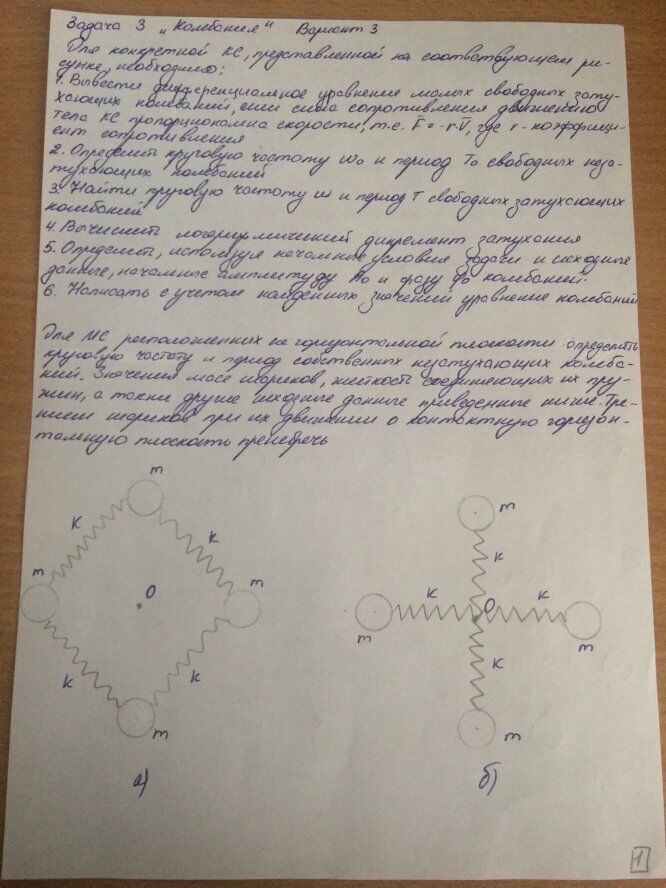 Задача 3 „Колебания" Вариант 3
Для конкретной КС, представленной на соответствующем ри-
сунке, необходимо:
1. Вывести дифференциальное уравнение малых свободных зату-
хающих колебаний, если сила сопротивления движению
тела КС пропорциональна скорости, т.е. F̄ = -r·v̄, где r - коэффици-
ент сопротивления
2. Определить круговую частоту ω₀ и период T₀ свободных неза-
тухающих колебаний
3. Найти круговую частоту ω и период T свободных затухающих
колебаний
4. Вычислить логарифмический декремент затухания
5. Определить, используя начальные условия задачи и исходные
данные, начальные амплитуду A₀ и фазу φ₀ колебаний.
6. Написать с учетом найденных значений уравнение колебаний
Для МС, расположенных на горизонтальной плоскости определить
круговую частоту и период собственных незатухающих колеба-
ний. Значения масс шариков, жёсткость соединяющих их пру-
жин, а также другие исходные данные приведенные ниже. Тре-
нием шариков при их движении о контактную горизон-
тальную плоскость пренебречь
m
K
K
m
O
m
K
K
m
а)
m
K
K
O
K
m
m
K
m
б)
1